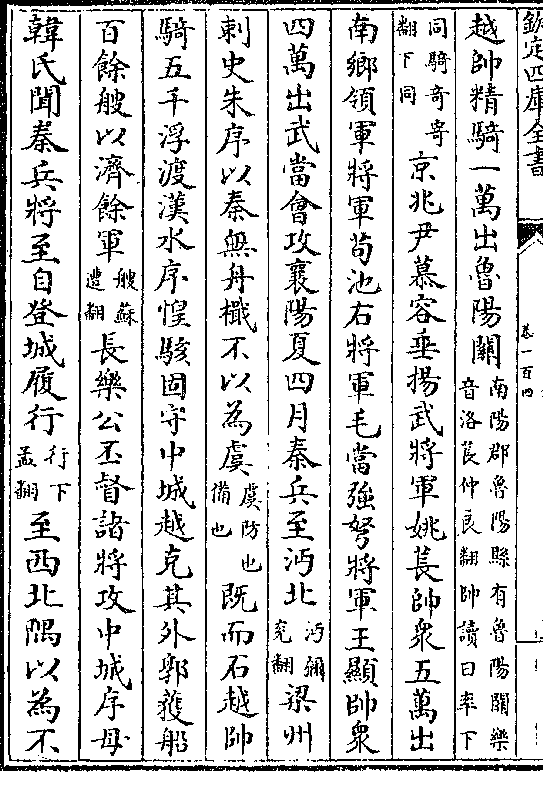 欽定四庫全書
卷一百四
越帥精騎一萬出魯陽關南陽郡魯陽縣有魯陽關樂音洛萇仲良翻帥讀曰率下
同騎奇寄翻下同京兆尹慕容垂揚武將軍姚萇帥衆五萬出
南鄉領軍將軍茍池右將軍毛當強弩將軍王顯帥衆
四萬出武當會攻襄陽夏四月秦兵至沔北沔彌兖翻梁州
刺史朱序以秦無舟檝不以為虞虞防也備也既而石越帥
騎五千浮渡漢水序惶駭固守中城越克其外郭獲船
百餘艘以濟餘軍艘蘇遭翻長樂公丕督諸將攻中城序母
韓氏聞秦兵將至自登城履行行下孟翻至西北隅以為不